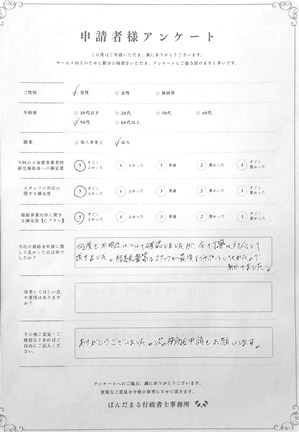 申請者様アンケート
この度はご申請いただき、誠にありがとうございます。
サービス向上のために数分の時間をいただき、アンケートにご協力頂けますと幸いです。
ご性別 男性 女性 無回答
年齢層 10代以下 20代 30代 40代
50代 60代以上
職業 個人事業主 法人
5 すごく良かった 4 よかった 3 普通 2 悪かった 1 すごく悪かった
スタッフの対応に関する満足度
5 すごく良かった 4 よかった 3 普通 2 悪かった 1 すごく悪かった
補助事業内容に関する満足度【ピアラン】
5 すごく良かった 4 よかった 3 普通 2 悪かった 1 すごく悪かった
当社の補助金申請に関して良かった点は何でしたか?
何度も不明点について確認をしましたが、全て丁寧に対応して
頂きました。
助かりました。
改善してほしい点や要望はありますか?
その他ご意見・ご感想などあればご自由にご記入ください。
ありがとうございました。次の補助金申請もお願いします。
アンケートへのご協力、誠にありがとうございます。
貴重なご意見を今後の参考にさせて頂きます。
ぱんだまる行政書士事務所